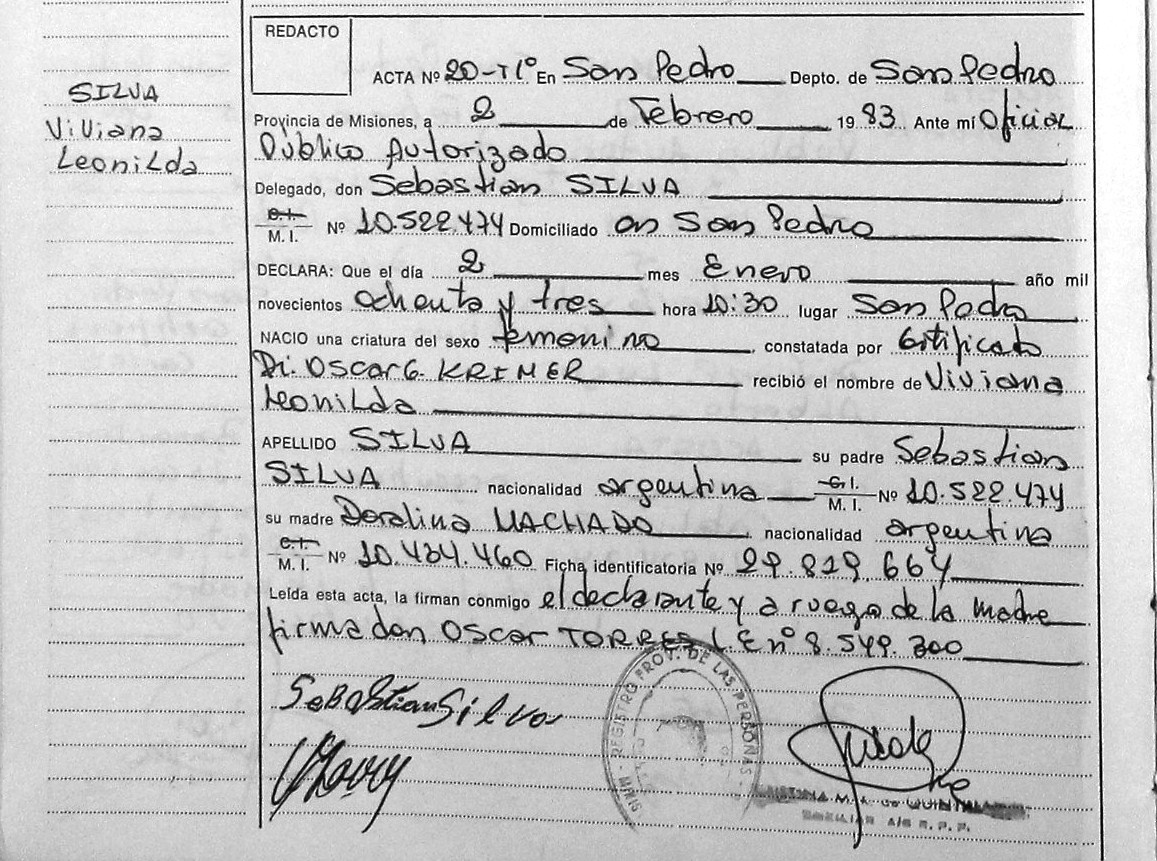 SILVA
Viviana
Leonilda
REDACTO
ACTA Nº 20-Tlº En San Pedro Depto. de San Pedro
Provincia de Misiones, a 2 de Febrero 1983 Ante mí Oficial
Público Autorizado
Delegado, don Sebastian SILVA
C.I.
M. I. Nº 10.522.474 Domiciliado en San Pedro
DECLARA: Que el día 2 mes Enero año mil
novecientos ochenta y tres hora 10:30 lugar San Pedro
NACIO una criatura del sexo femenino constatada por Certificado
Dr. Oscar G. KRIMER recibió el nombre de Viviana
Leonilda
APELLIDO SILVA su padre Sebastian
SILVA nacionalidad argentina C.I.
M. I. Nº 10.522.474
su madre Doralina MACHADO nacionalidad argentina
C.I.
M. I. Nº 10.434.460 Ficha identificatoria Nº 29.829.664
Leída esta acta, la firman conmigo el declarante y a ruego de la madre
firma don OSCAR TORRES L.E nº 8.549.300
Sebastian Silva
REGISTRO PROT. DE LAS PERSONAS